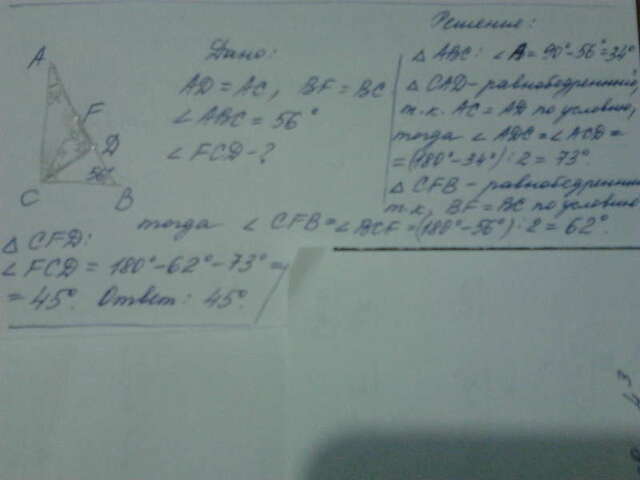 A
F
D
C
B
56°
Дано:
AD = AC, BF = BC
∠ABC = 56°
∠FCD - ?
Решение:
△ABC: ∠A = 90°-56°=34°
△CAD - равнобедренный,
т.к. AC = AD по условию,
тогда ∠ADC = ∠ACD =
= (180°-34°):2 = 73°.
△CFB - равнобедренный
т.к. BF = BC по условию
тогда ∠CFB = ∠BCF = (180°-56°):2 = 62°.
△CFD:
∠FCD = 180°-62°-73° =
= 45°. Ответ: 45°.